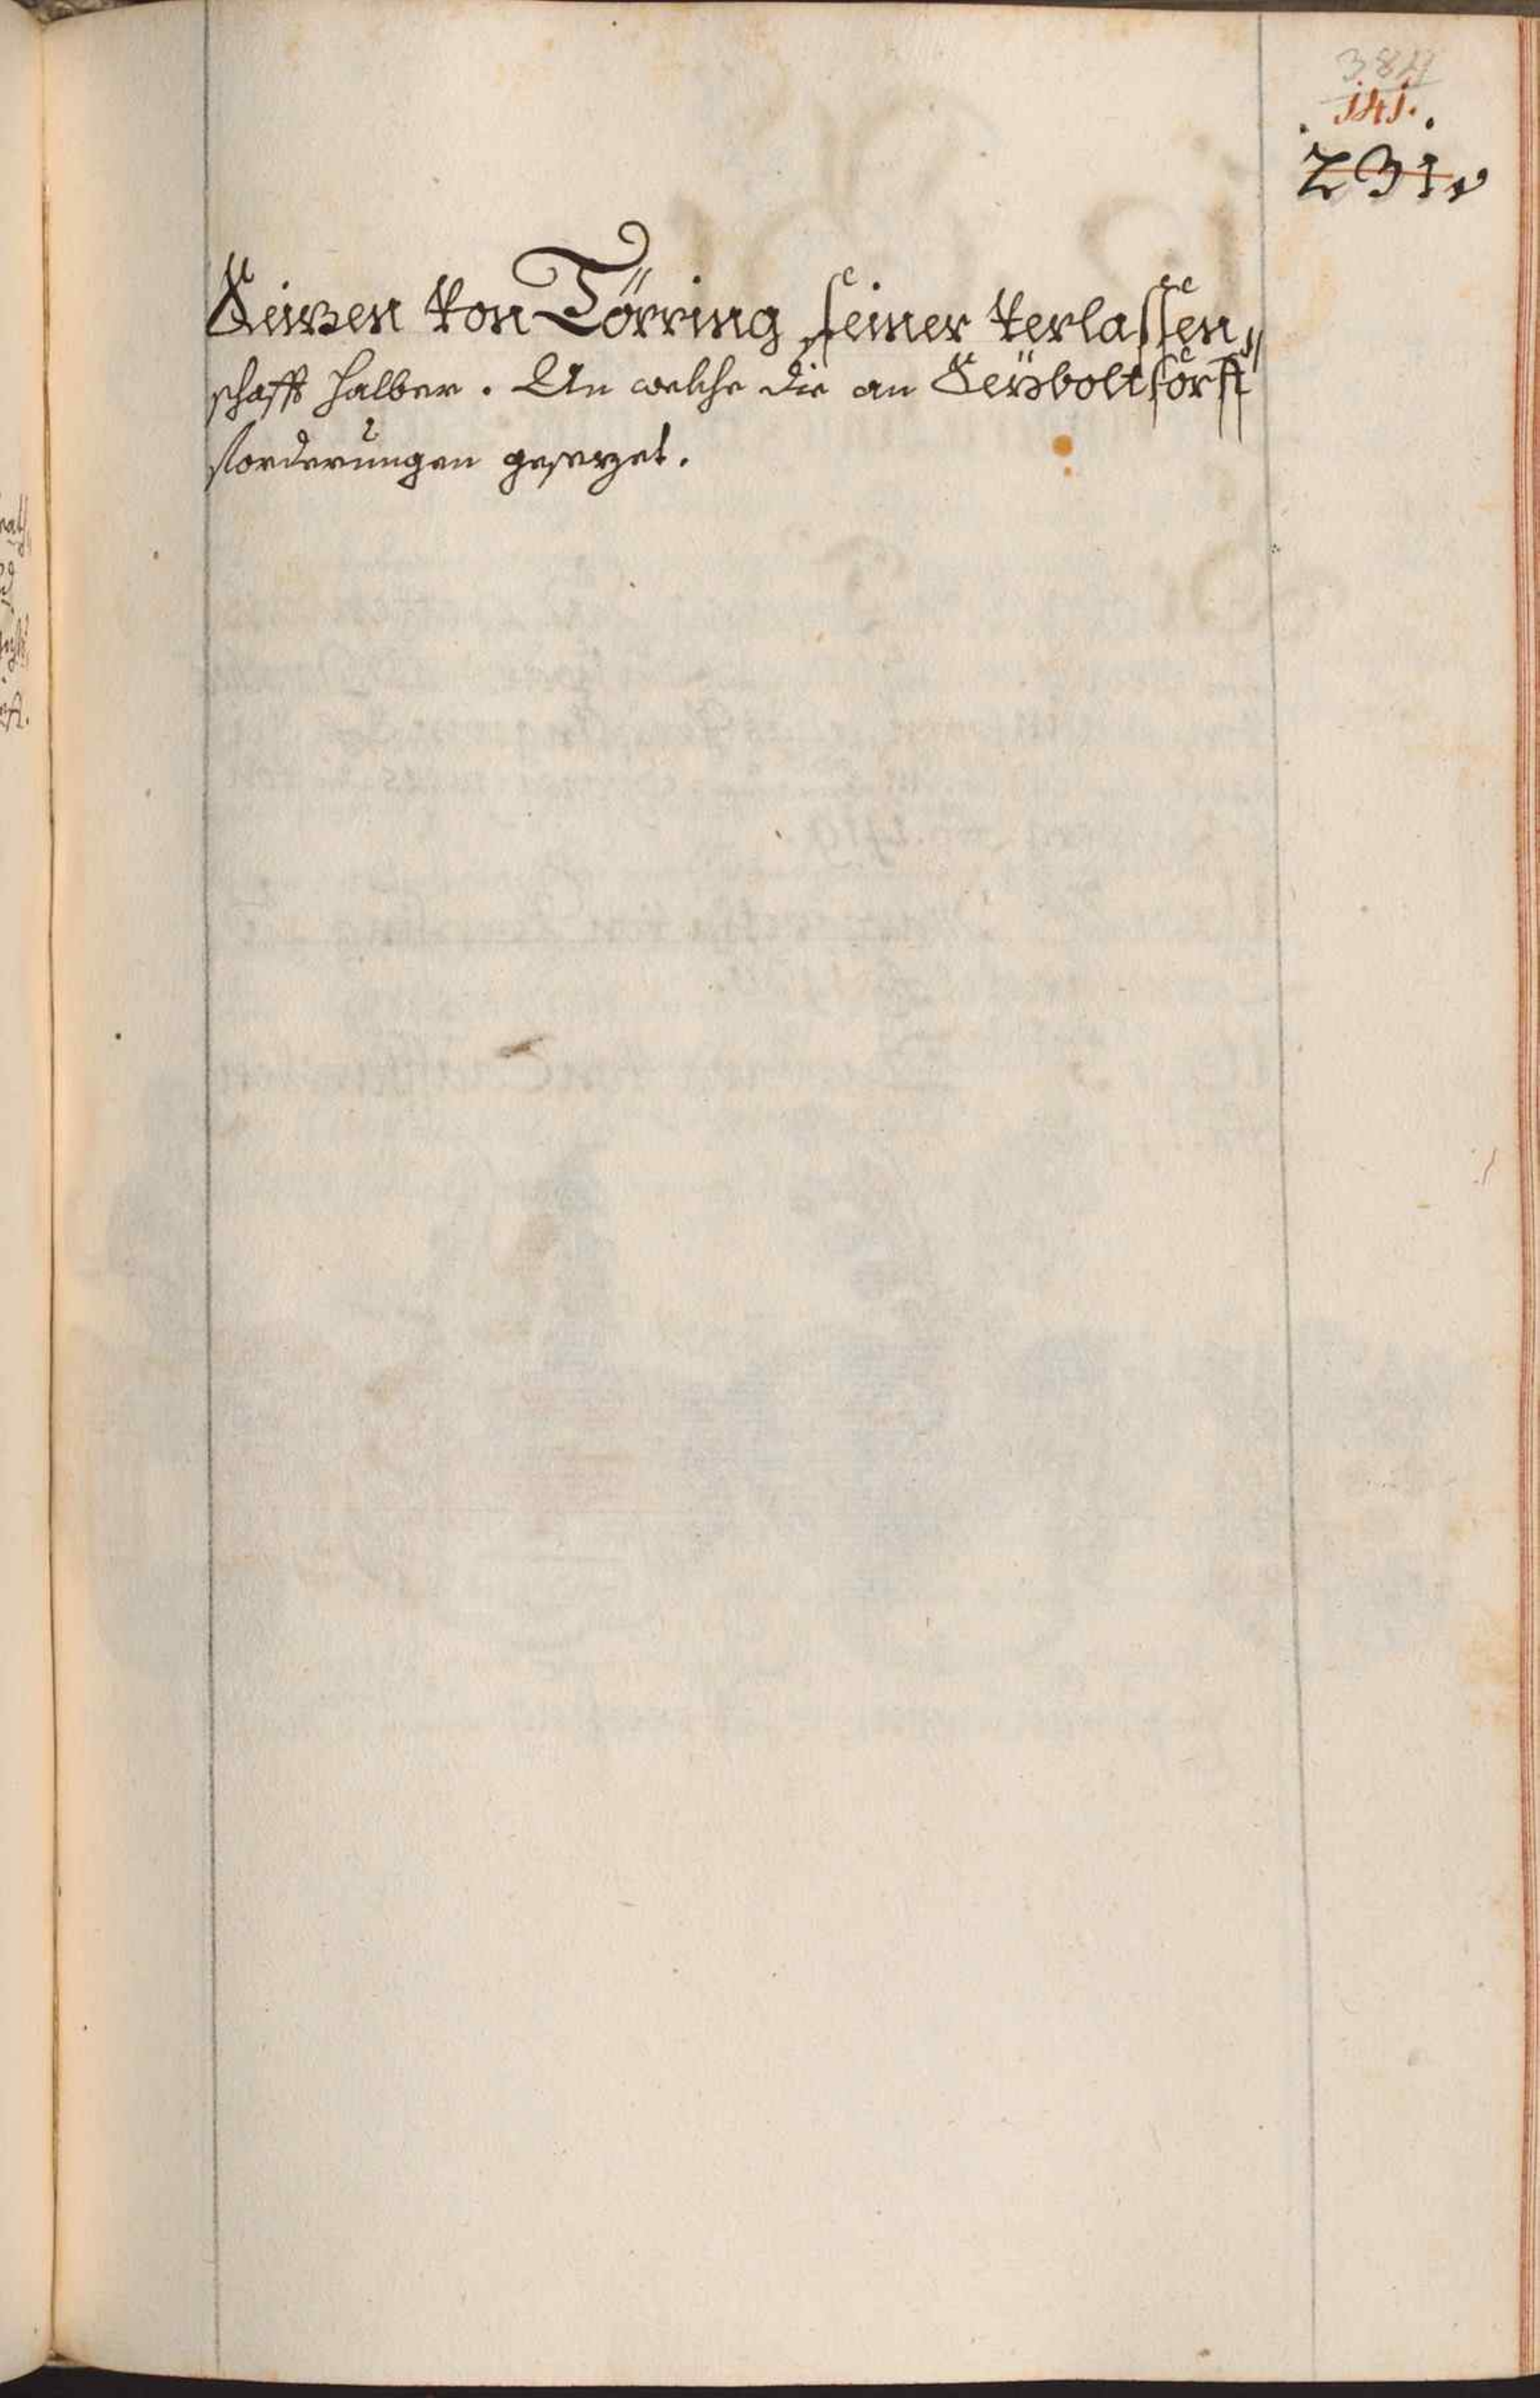 384
141.
231
Seitzen von Törring seiner verlassen„
schafft halber. An welche die an Seÿboltstorff
vorderungen gesetzet.